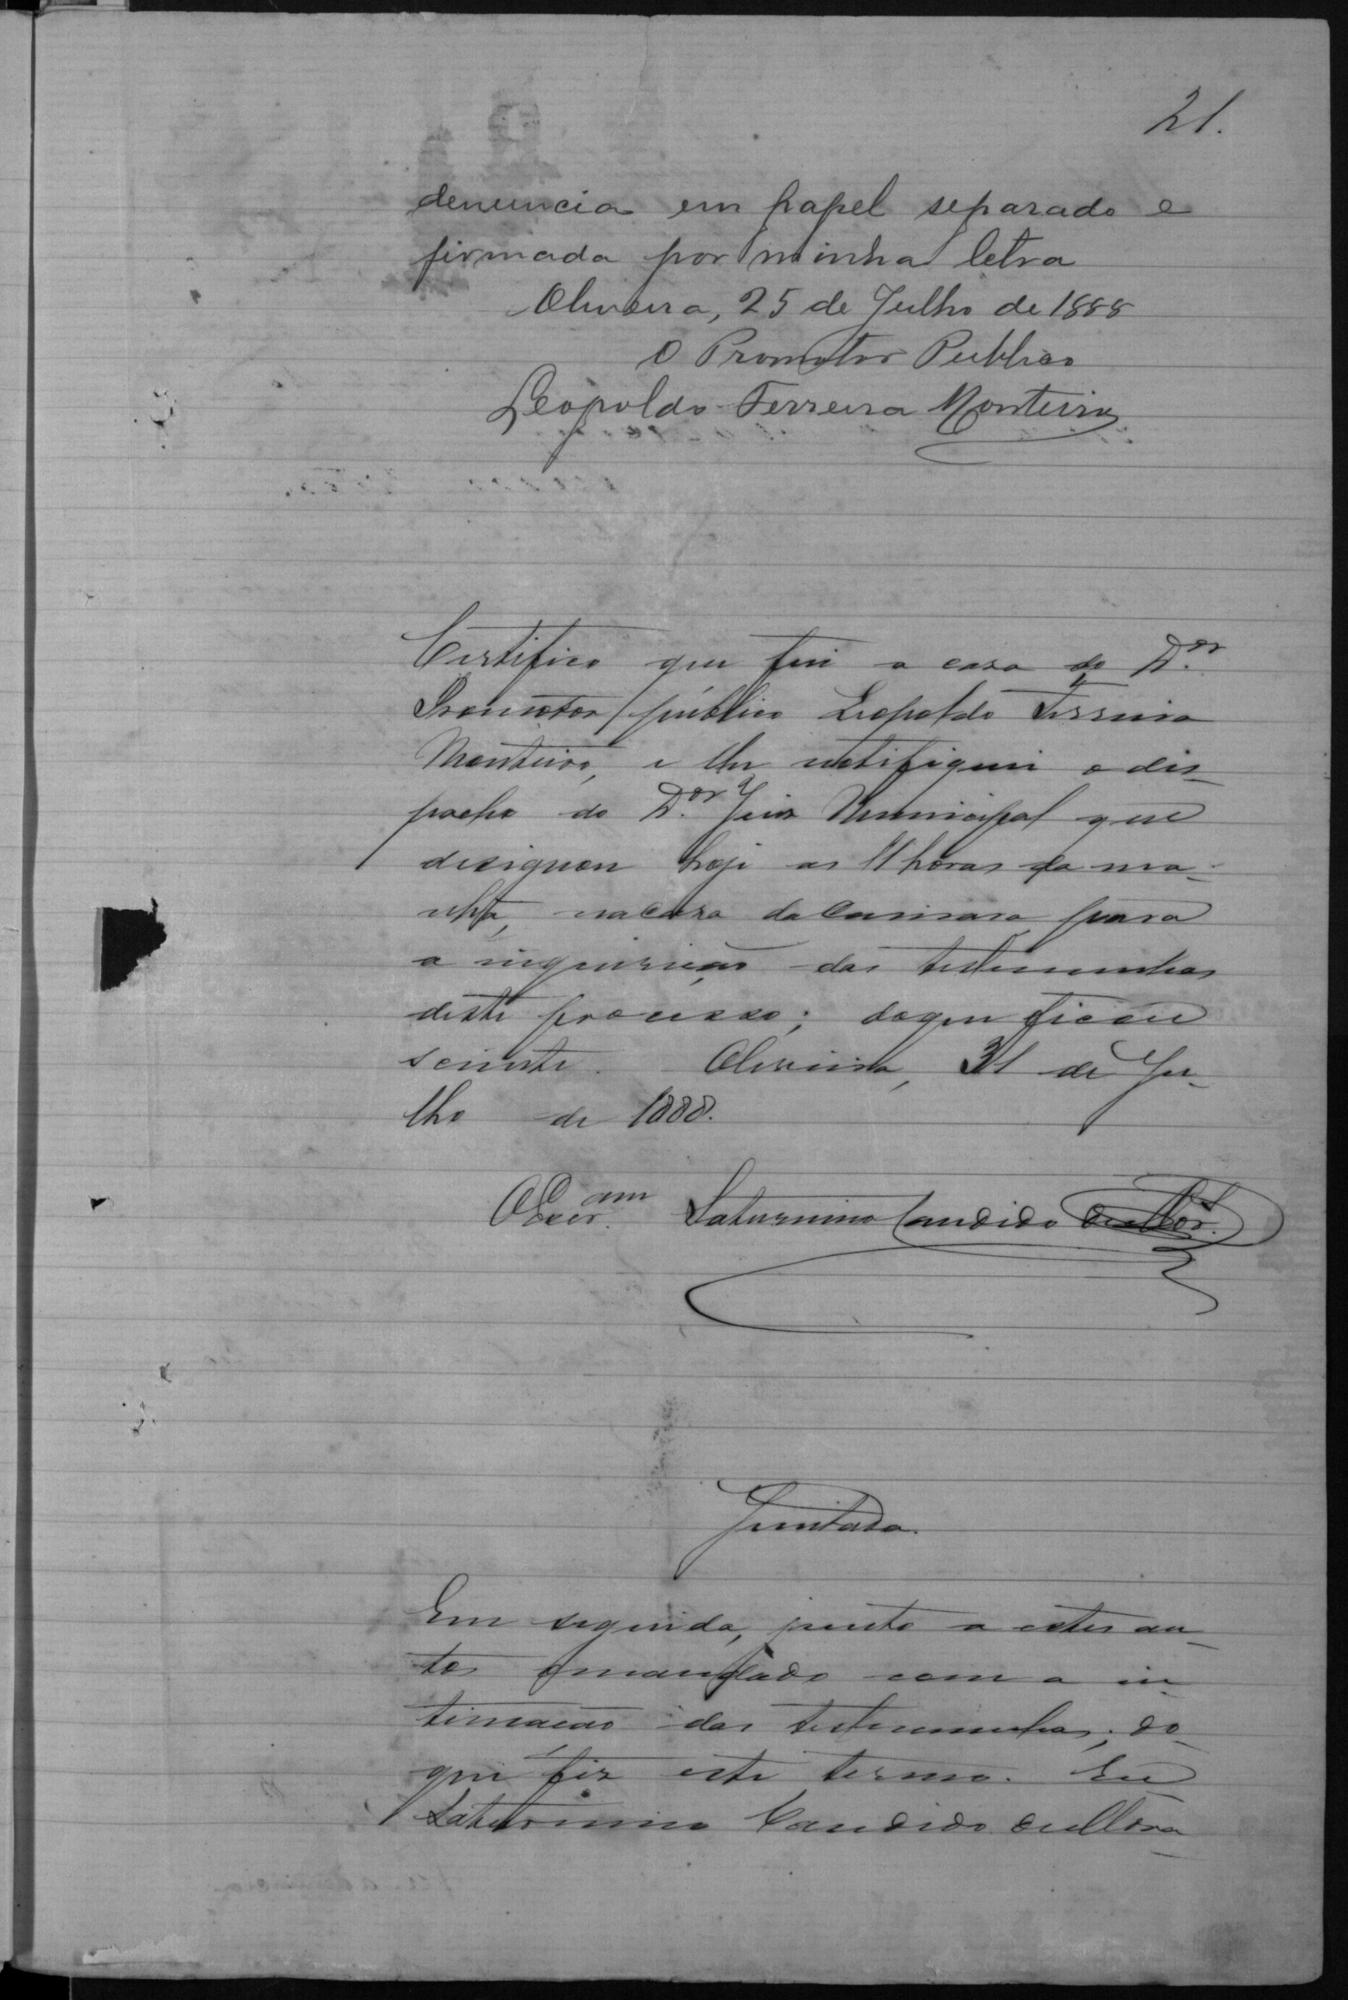 21.
denuncia em papel separado e
firmada por minha letra
Oliveira, 25 de Julho de 1888
O Promotor Publico
Leopoldo Ferreira Monteiro
Certifico que fui a casa do D.or
Promotor publico Leopoldo Ferreira
Monteiro, e lhe notifiquei o des-
pacho do D.or Juiz Municipal que
designou hoje as 11 horas da ma-
nhã, na casa da Camara para
a inquirição das testemunhas
deste processo; do que ficou
sciente. Oliveira, 31 de Ju-
lho de 1888.
Saturnino Candido
Juntada.
Em seguida, junto a estes au-
tos o mandado com a in-
timação das testemunhas; do
que fiz este termo. Eu
Saturnino Candido